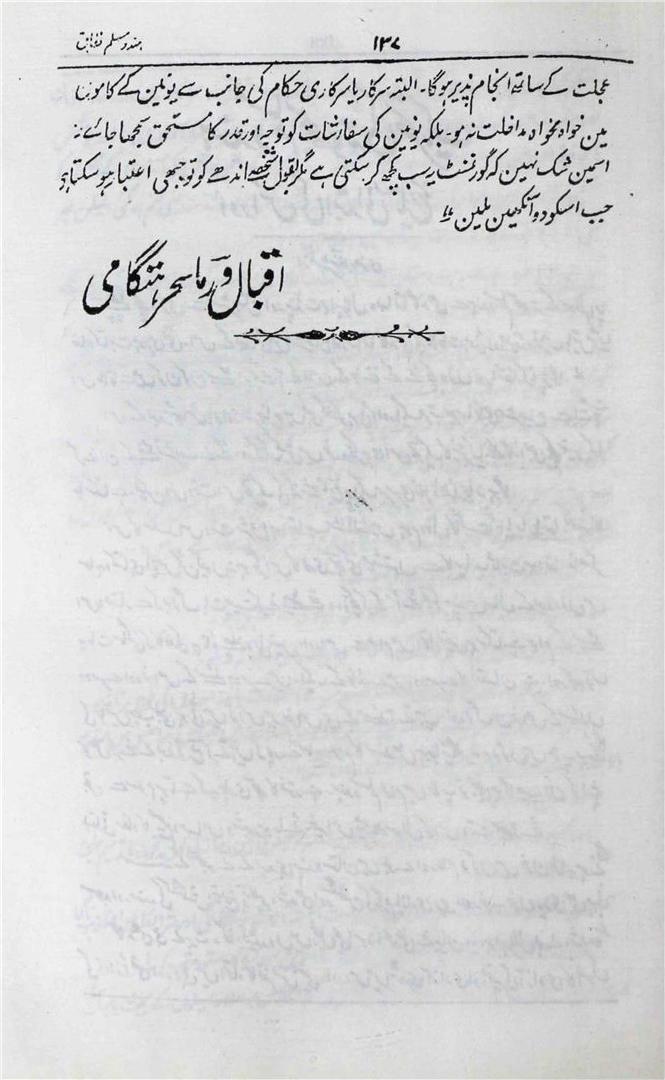 ۱۳۷
عجلت کے ساتھ انجام پذیر ہوگا۔ البتہ سرکار یا سرکاری حکام کی جانب سے یونین کے کامون
مین خواہ مخواہ مداخلت نہ ہو۔ بلکہ یونین کی سفارشات کو توجہ اور قدر کا مستحق سمجھا جائے۔
اسمین شک نہین کہ گورنمنٹ یہ سب کچھ کر سکتی ہے مگر بقول شخصے اندھے کو تو جبھی اعتبار ہو سکتا ہے
جب اسکو دو آنکھین ملین ؎
اقبال ورما سحر ہتگامی
ہندو مسلم